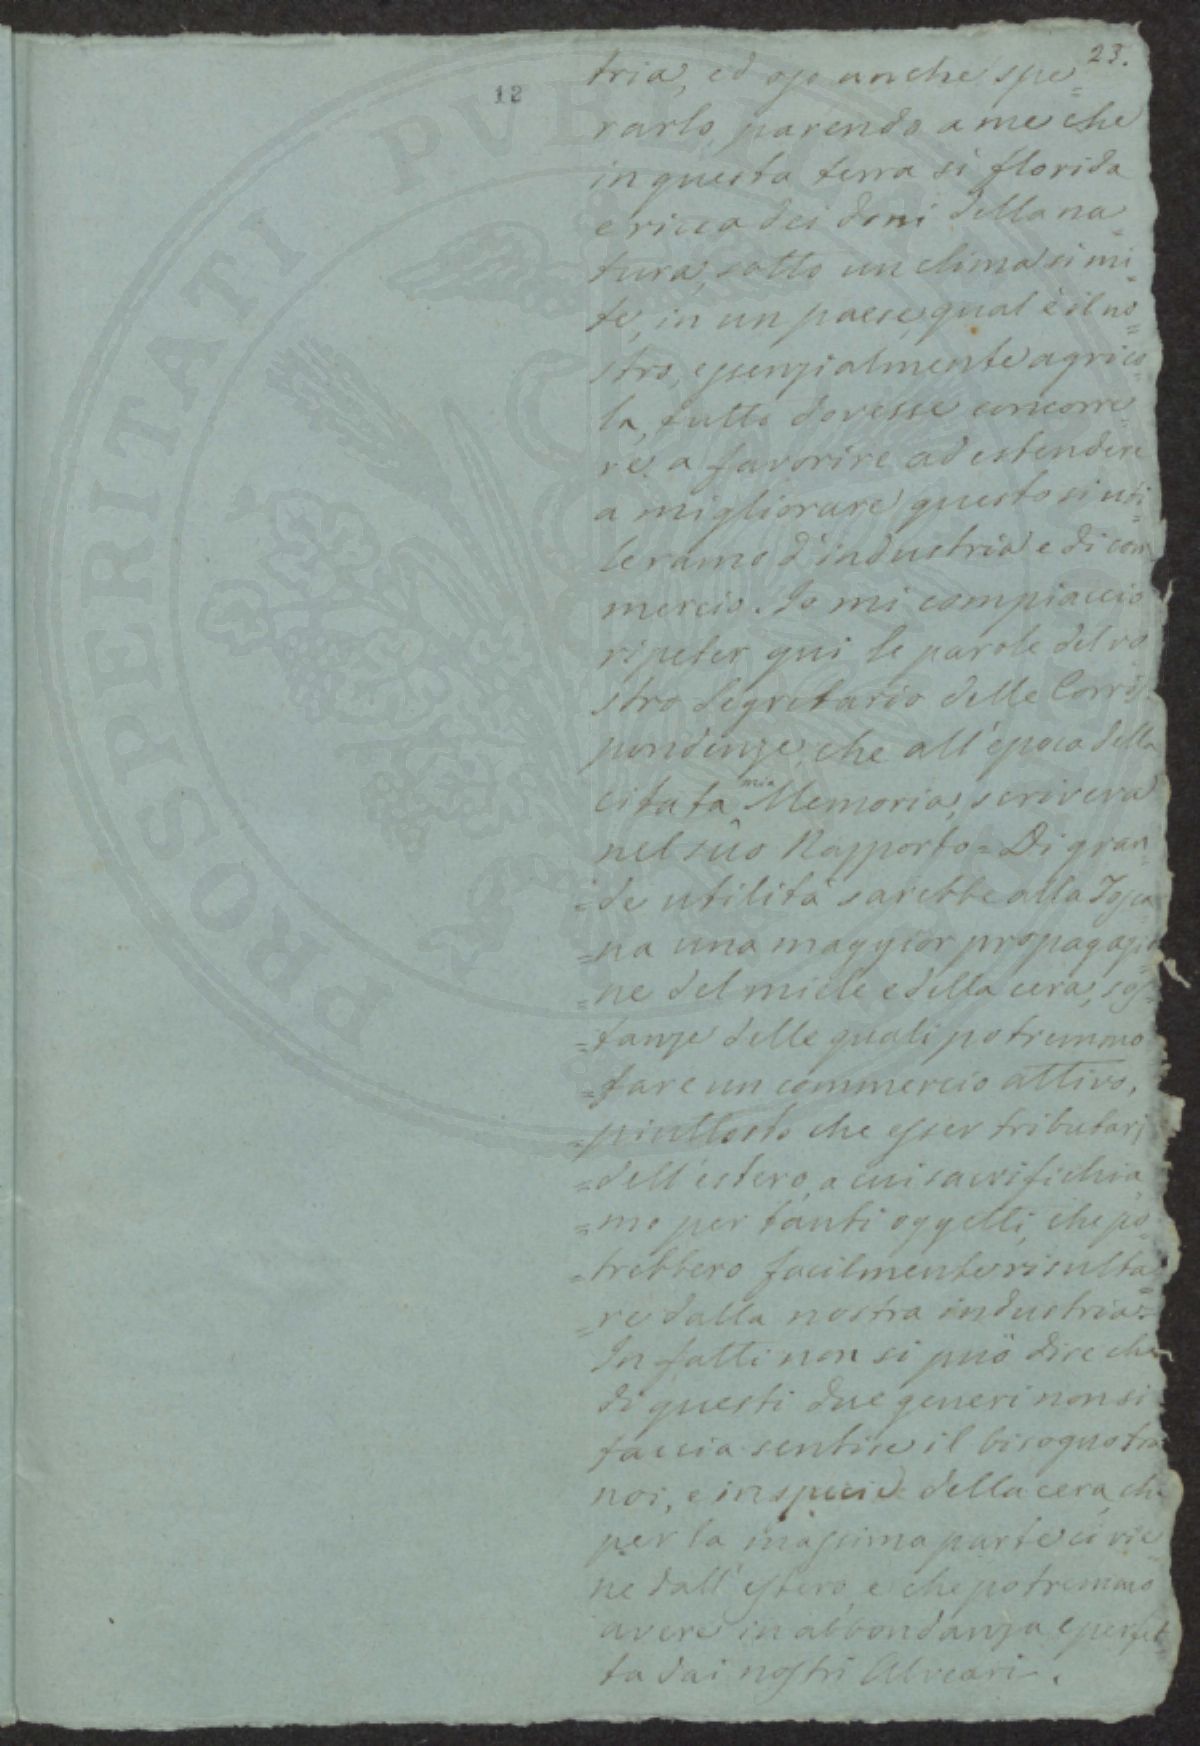 23.
12
tria, ed oso anche spe=
rarlo, parendo a me che
in questa terra sì florida
e ricca dei doni della na=
tura, sotto un clima sì mi=
te, in un paese, qual'è il no=
stro, essenzialmente agrico=
la, tutto dovesse concorre=
re a favorire ad estendere
a migliorare questo sì uti=
le ramo d'industria e di com
mercio. Io mi compiaccio
ripeter qui le parole del vo
stro Segretario delle Corris
pondenze, che all'epoca della
citata mia Memoria, scriveva
nel suo Rapporto = Di gran=
=de utilità sarebbe alla Tosca=
=na una maggior propagazio
=ne del miele e della cera, sos=
=tanze delle quali potremmo
=fare un commercio attivo,
=piuttosto che esser tributarj
=dell'estero, a cui sacrifichia
=mo per tanti oggetti, che po=
=trebbero facilmente risulta=
=re dalla nostra industria=
In fatti non si può dire che
di questi due generi non si
faccia sentire il bisogno tra
noi, e in specie della cera, che
per la massima parte ci vie=
ne dall'estero, e che potremmo
avere in abbondanza e perfet=
ta dai nostri Alveari.
PROSPERITATI PVBLICAE